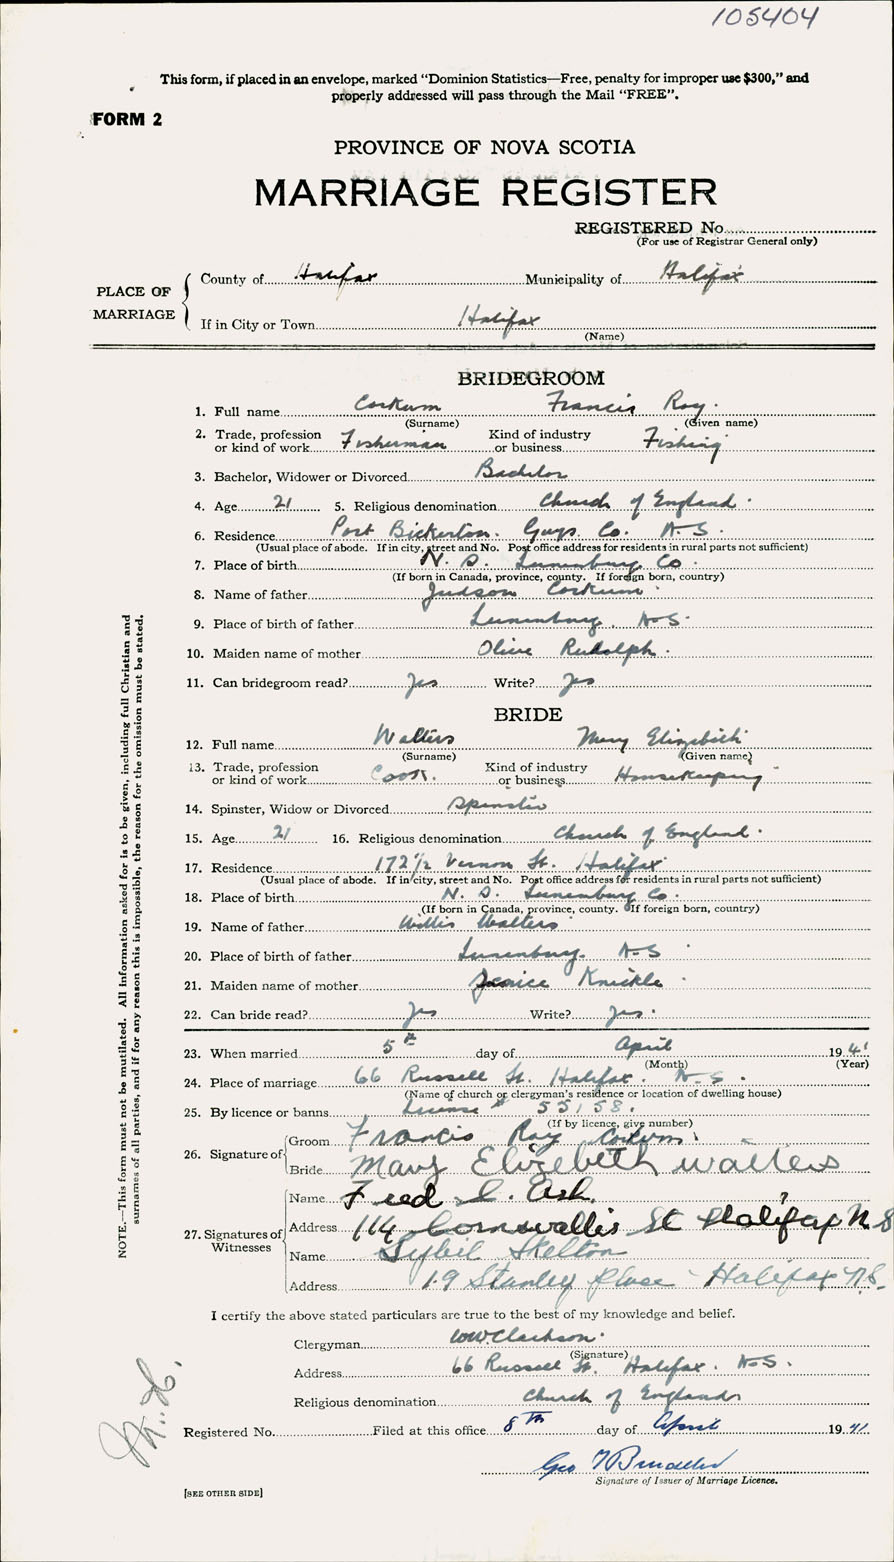 105404
This form, if placed in an envelope, marked “Dominion Statistics—Free, penalty for improper use $300,” and
properly addressed will pass through the Mail “FREE”.
FORM 2
PROVINCE OF NOVA SCOTIA
MARRIAGE REGISTER
REGISTERED No.
(For use of Registrar General only)
PLACE OF MARRIAGE
County of Halifax Municipality of Halifax
If in City or Town Halifax
(Name)
BRIDEGROOM
1. Full name Corkum Francis Roy.
(Surname) (Given name)
2. Trade, profession or kind of work Fisherman Kind of industry or business Fishing
3. Bachelor, Widower or Divorced Bachelor
4. Age 21 5. Religious denomination Church of England.
6. Residence Port Bickerton. Guys. Co. N.S.
(Usual place of abode. If in city, street and No. Post office address for residents in rural parts not sufficient)
7. Place of birth N.S. Lunenburg Co.
(If born in Canada, province, county. If foreign born, country)
8. Name of father Judson Corkum.
9. Place of birth of father Lunenburg. N.S.
10. Maiden name of mother Olive Rudolph.
11. Can bridegroom read? Yes Write? Yes
BRIDE
12. Full name Walters Mary Elizabeth
(Surname) (Given name)
13. Trade, profession or kind of work Cook. Kind of industry or business Housekeeping
14. Spinster, Widow or Divorced Spinster
15. Age 21 16. Religious denomination Church of England.
17. Residence 172½ Vernon St. Halifax
(Usual place of abode. If in city, street and No. Post office address for residents in rural parts not sufficient)
18. Place of birth N.S. Lunenburg Co.
(If born in Canada, province, county. If foreign born, country)
19. Name of father Willis Walters
20. Place of birth of father Lunenburg. N.S
21. Maiden name of mother Knickle
22. Can bride read? Yes Write? Yes.
23. When married 5th day of April 1941
(Month) (Year)
24. Place of marriage 66 Russell St. Halifax. N.S.
(Name of church or clergyman's residence or location of dwelling house)
25. By licence or banns License # 55158.
(If by licence, give number)
26. Signature of
Groom Francis Roy Corkum
Bride Mary Elizebeth Walters
27. Signatures of Witnesses
Name Fred Ash.
Address 114 Cornwallis St Halifax N.S
Name Sybil Skelton
Address 19 Stanley Place - Halifax N.S.
I certify the above stated particulars are true to the best of my knowledge and belief.
Clergyman W.W. Clarkson.
(Signature)
Address 66 Russell St. Halifax. N.S.
Religious denomination Church of England
Registered No. Filed at this office 8th day of April 1941
Geo
Signature of Issuer of Marriage Licence.
[SEE OTHER SIDE]
NOTE.—This form must not be mutilated. All information asked for is to be given, including full Christian and
surnames of all parties, and if for any reason this is impossible, the reason for the omission must be stated.